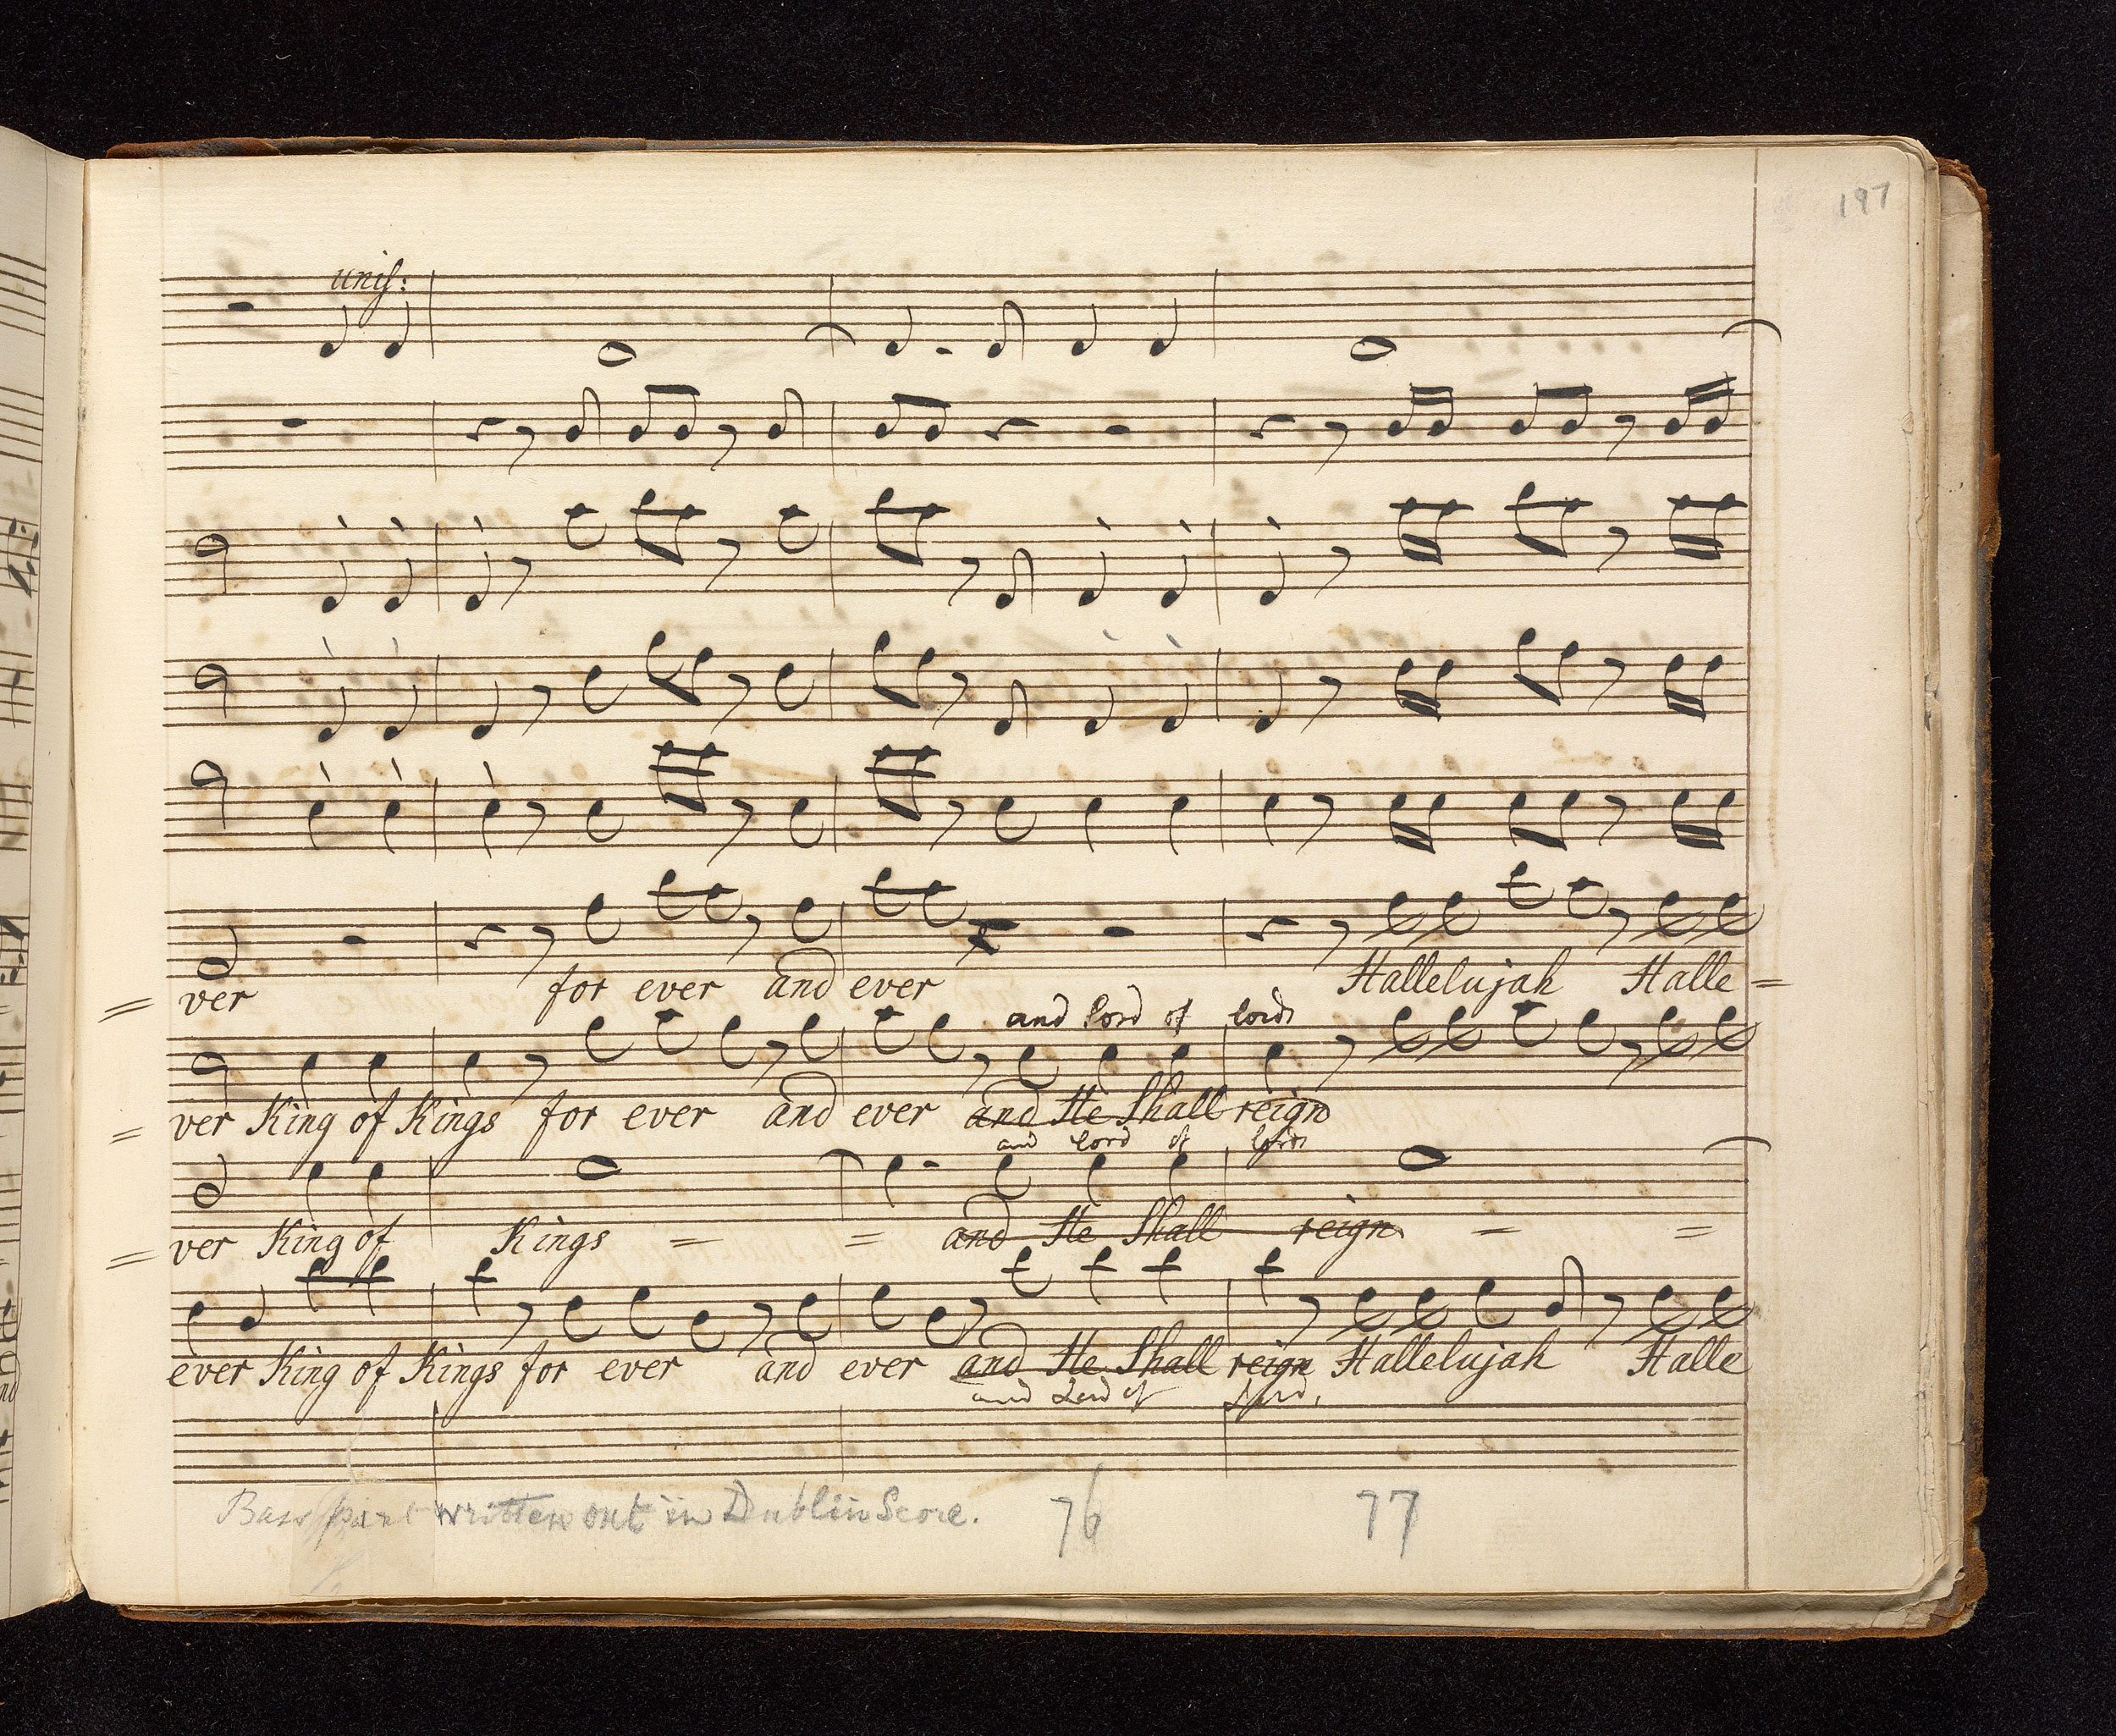 197
unis:
= ver for ever and ever Hallelujah Halle =
and lord of lords
= ver King of Kings for ever and ever and He Shall reign
and lord of lords
= ver King of Kings = = and He Shall reign = =
ever King of Kings for ever and ever and He Shall reign Hallelujah Halle
and Lord of Lord,
Bass part written out in Dublin Score. 76 77